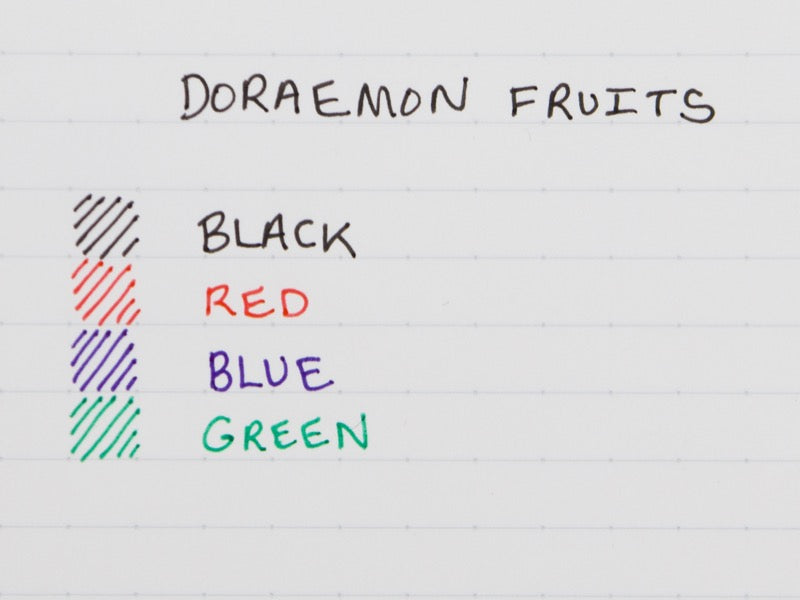 DORAEMON FRUITS
BLACK
RED
BLUE
GREEN